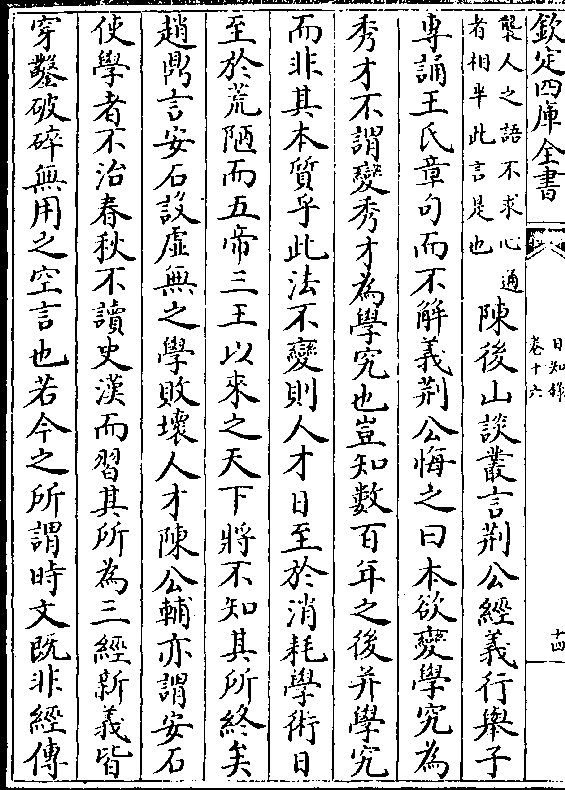 欽定四庫全書
日知錄
卷十六
十四
襲人之語不求心通
者相半此言是也
陳後山談叢言荆公經義行舉子
專誦王氏章句而不解義荆公悔之曰本欲變學究為
秀才不謂變秀才為學究也豈知數百年之後并學究
而非其本質乎此法不變則人才日至於消耗學術日
至於荒陋而五帝三王以來之天下將不知其所終矣
趙鼎言安石設虛無之學敗壞人才陳公輔亦謂安石
使學者不治春秋不讀史漢而習其所為三經新義皆
穿鑿破碎無用之空言也若今之所謂時文既非經傳